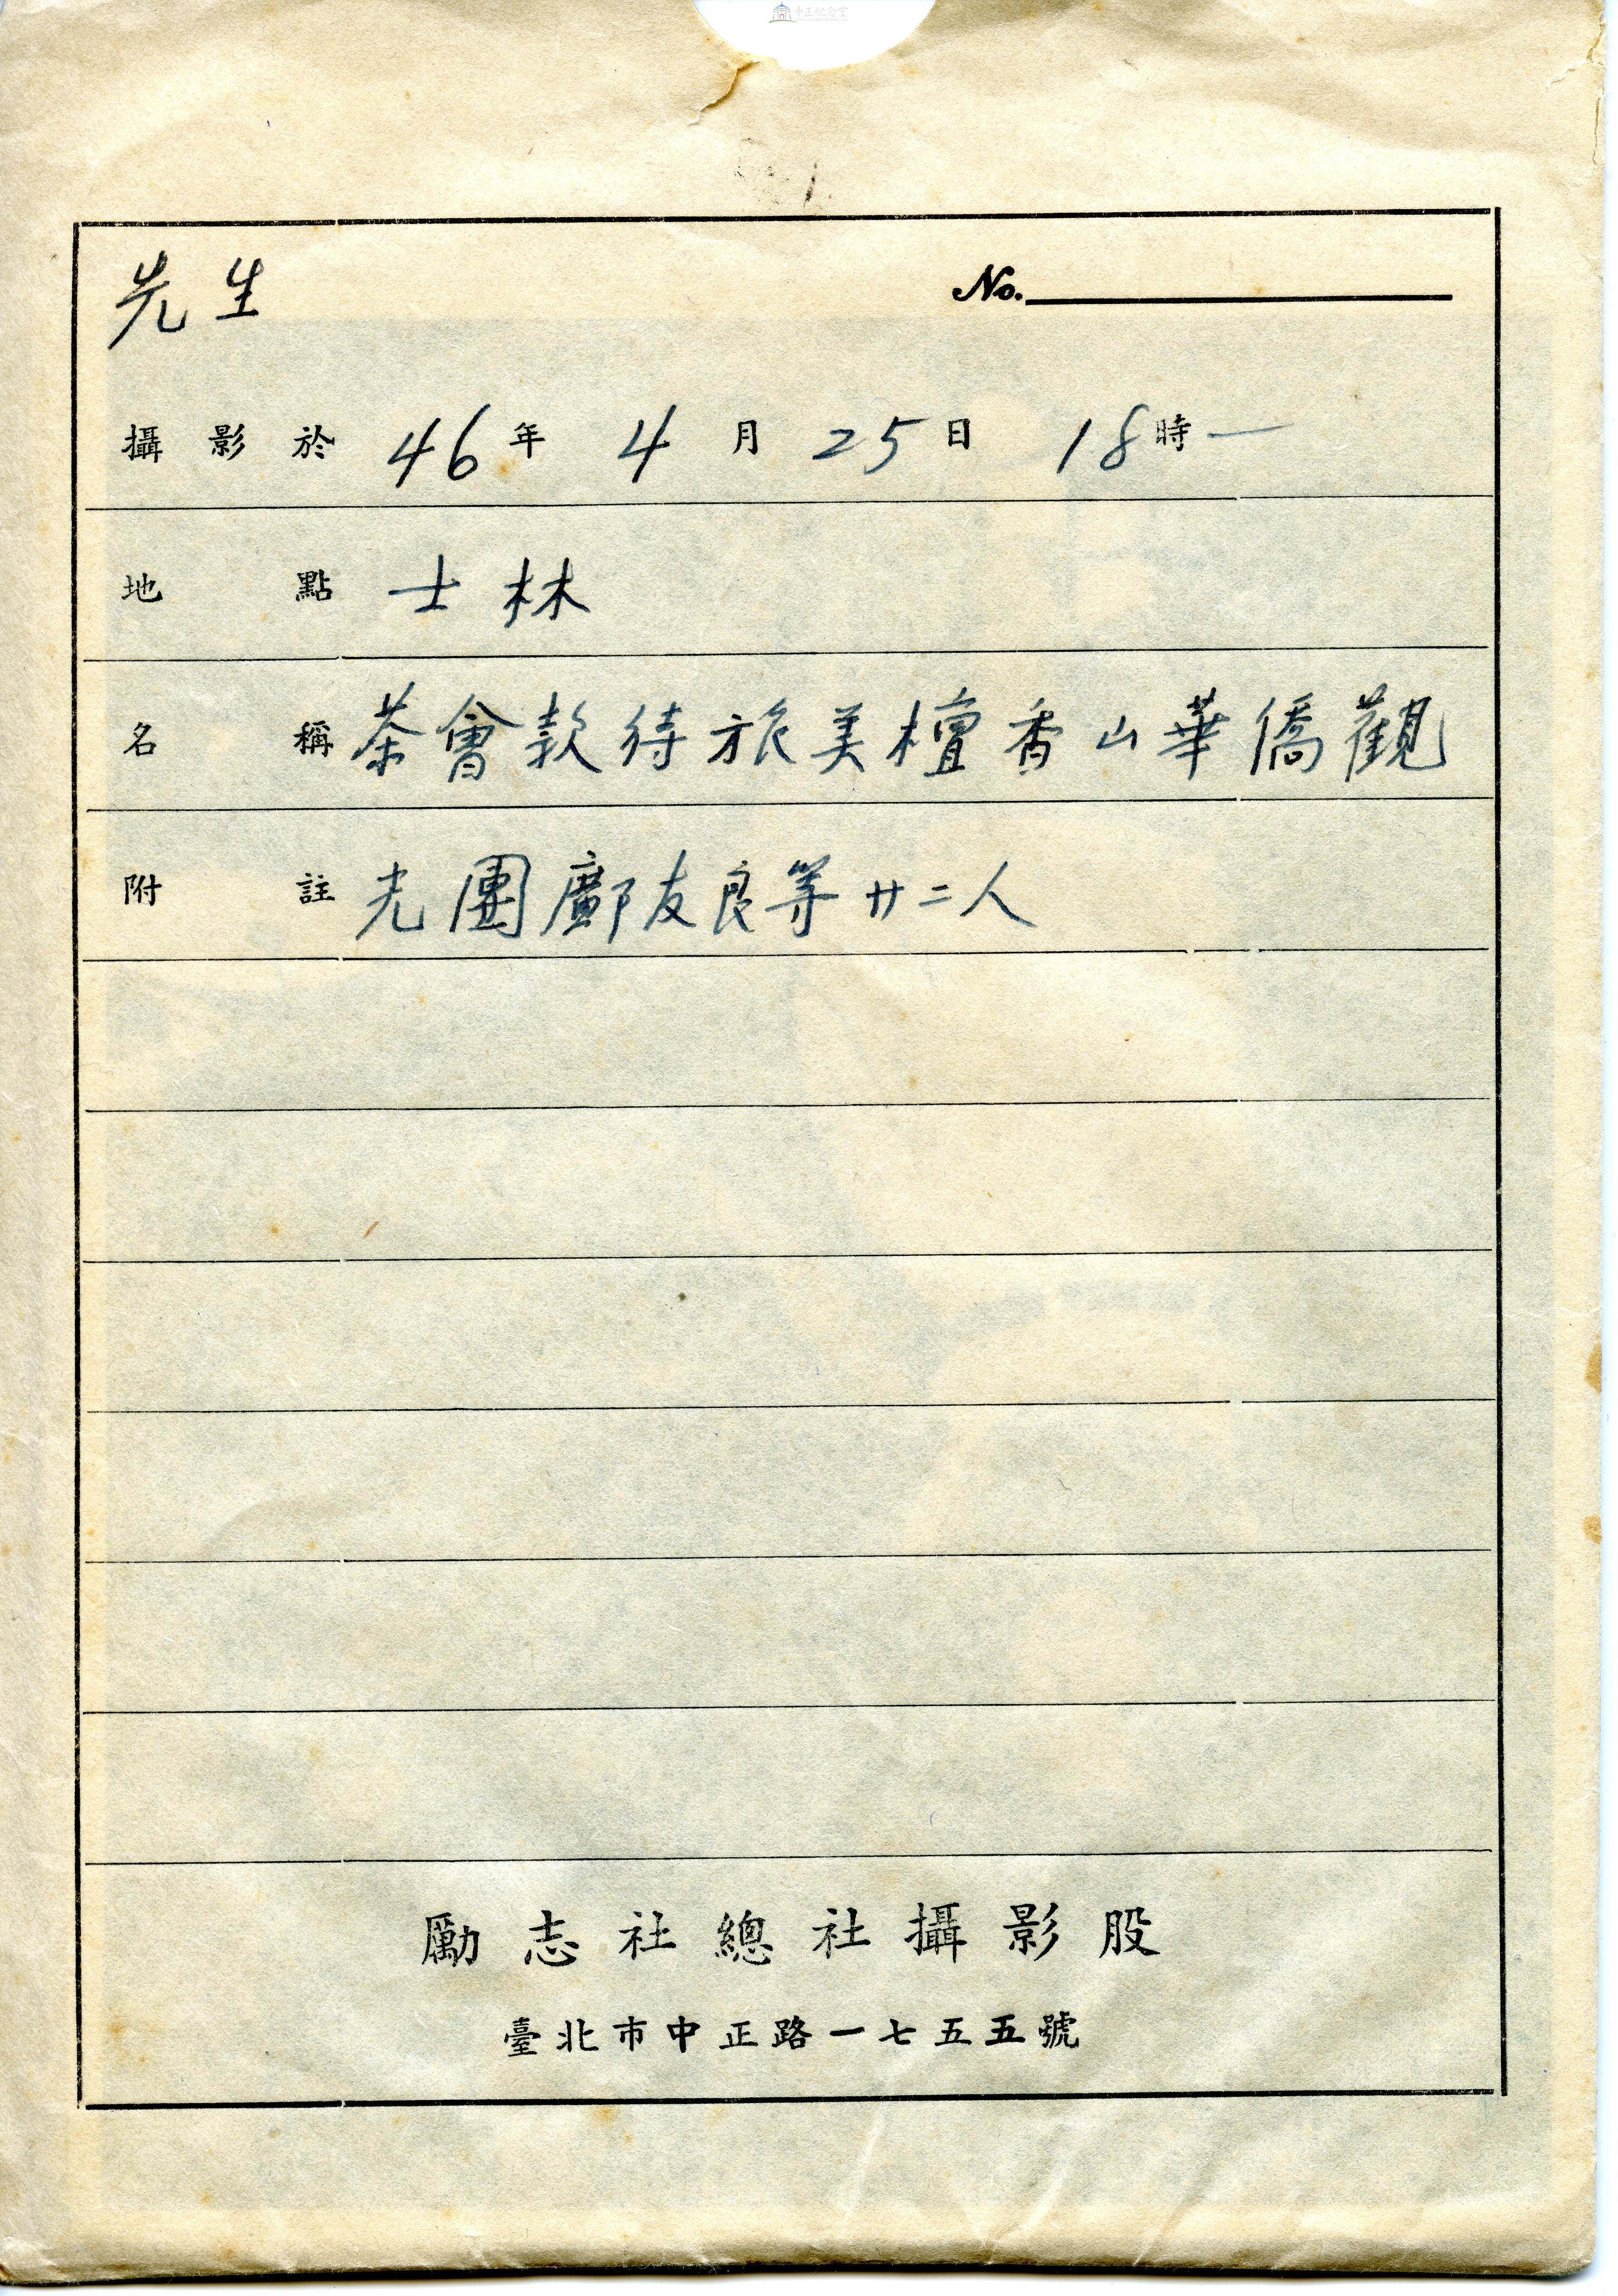 中正紀念堂
先生 No.
攝影於 46年 4月 25日 18時—
地點 士林
名稱 茶會款待旅美檀香山華僑觀
附註 光團鄺友良等廿二人
勵志社總社攝影股
臺北市中正路一七五五號